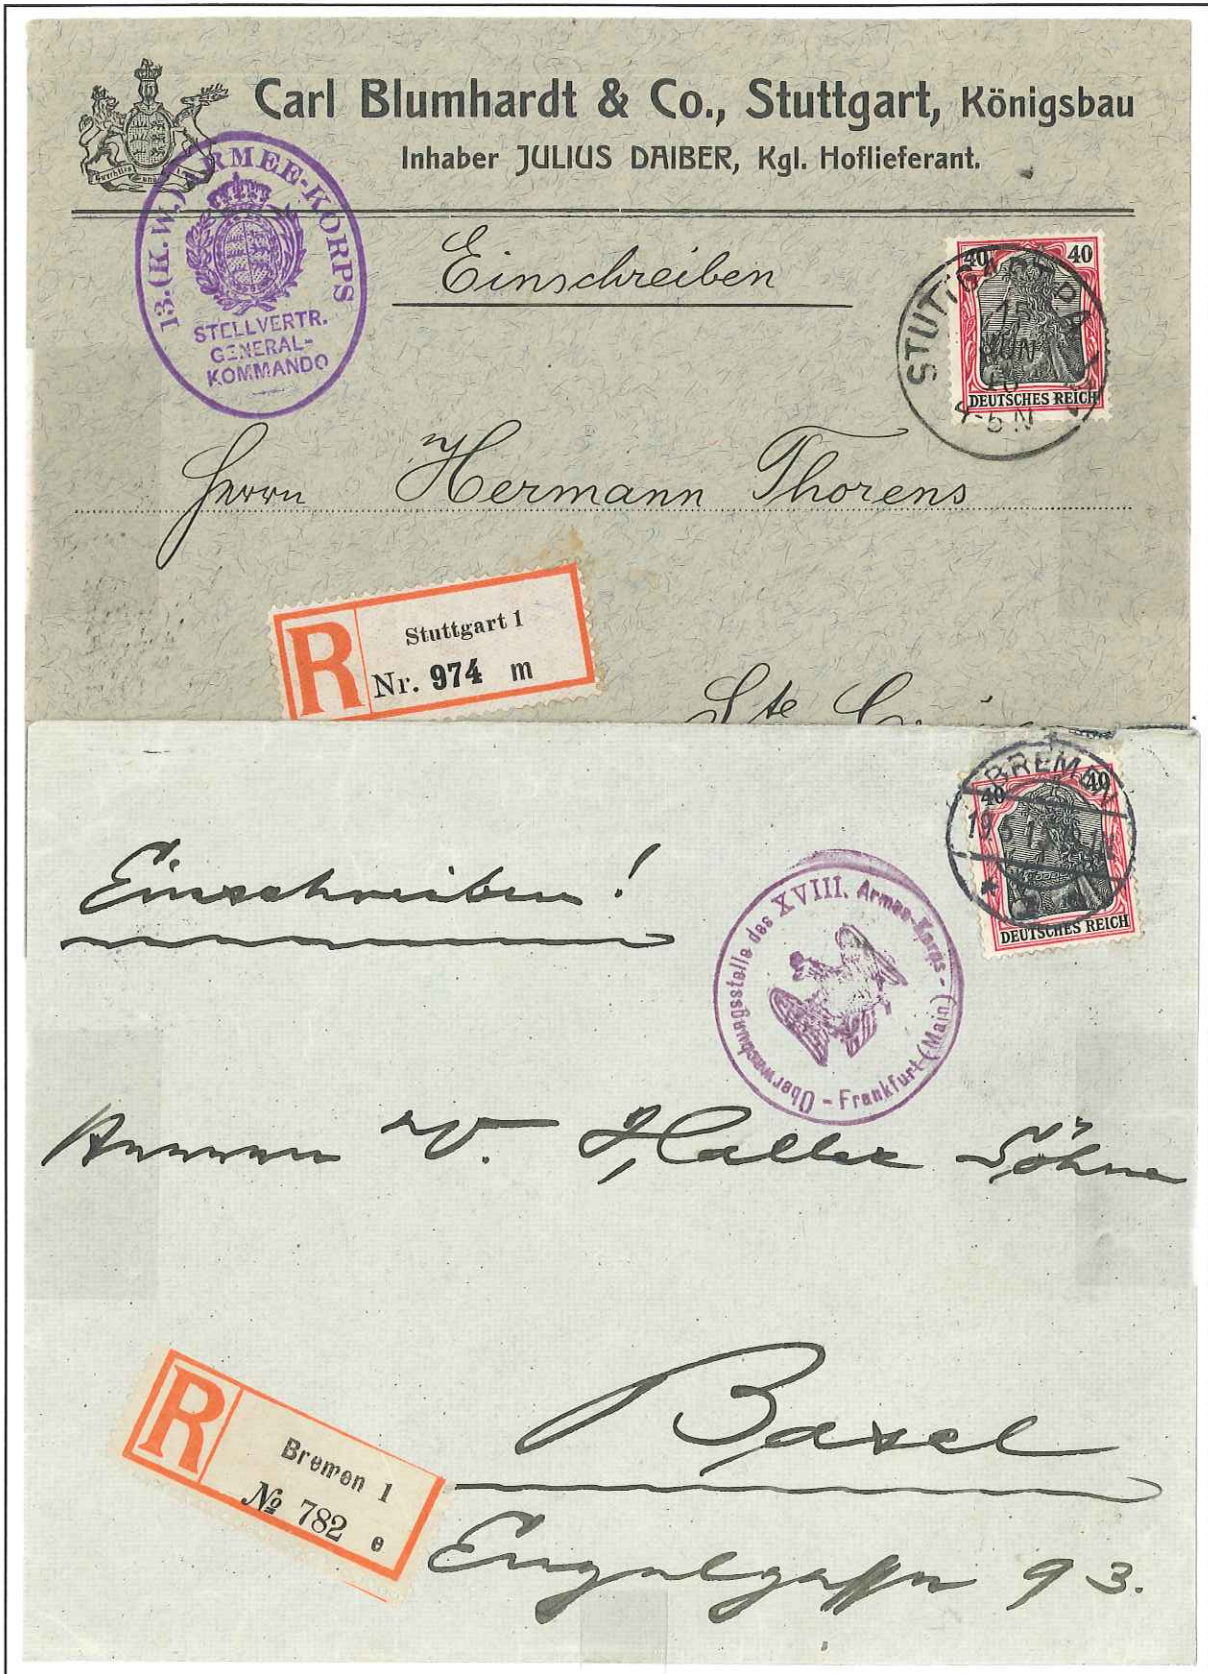 Carl Blumhardt & Co., Stuttgart, Königsbau
Inhaber JULIUS DAIBER, Kgl. Hoflieferant.
13. (K.W.) ARMEE-KORPS
STELLVERTR.
GENERAL-
KOMMANDO
Einschreiben
40 40
DEUTSCHES REICH
STUTTGART
15
JUN
4-5 N
Herrn Hermann Thorens
R
Stuttgart 1
Nr. 974 m
Ste
BREMEN
19
40 40
DEUTSCHES REICH
Einschreiben!
Überwachungsstelle des XVIII. Armee-Korps - Frankfurt (Main) -
Herren W. Haller Söhne
Basel
R
Bremen 1
№ 782 e
Engelgasse 93.